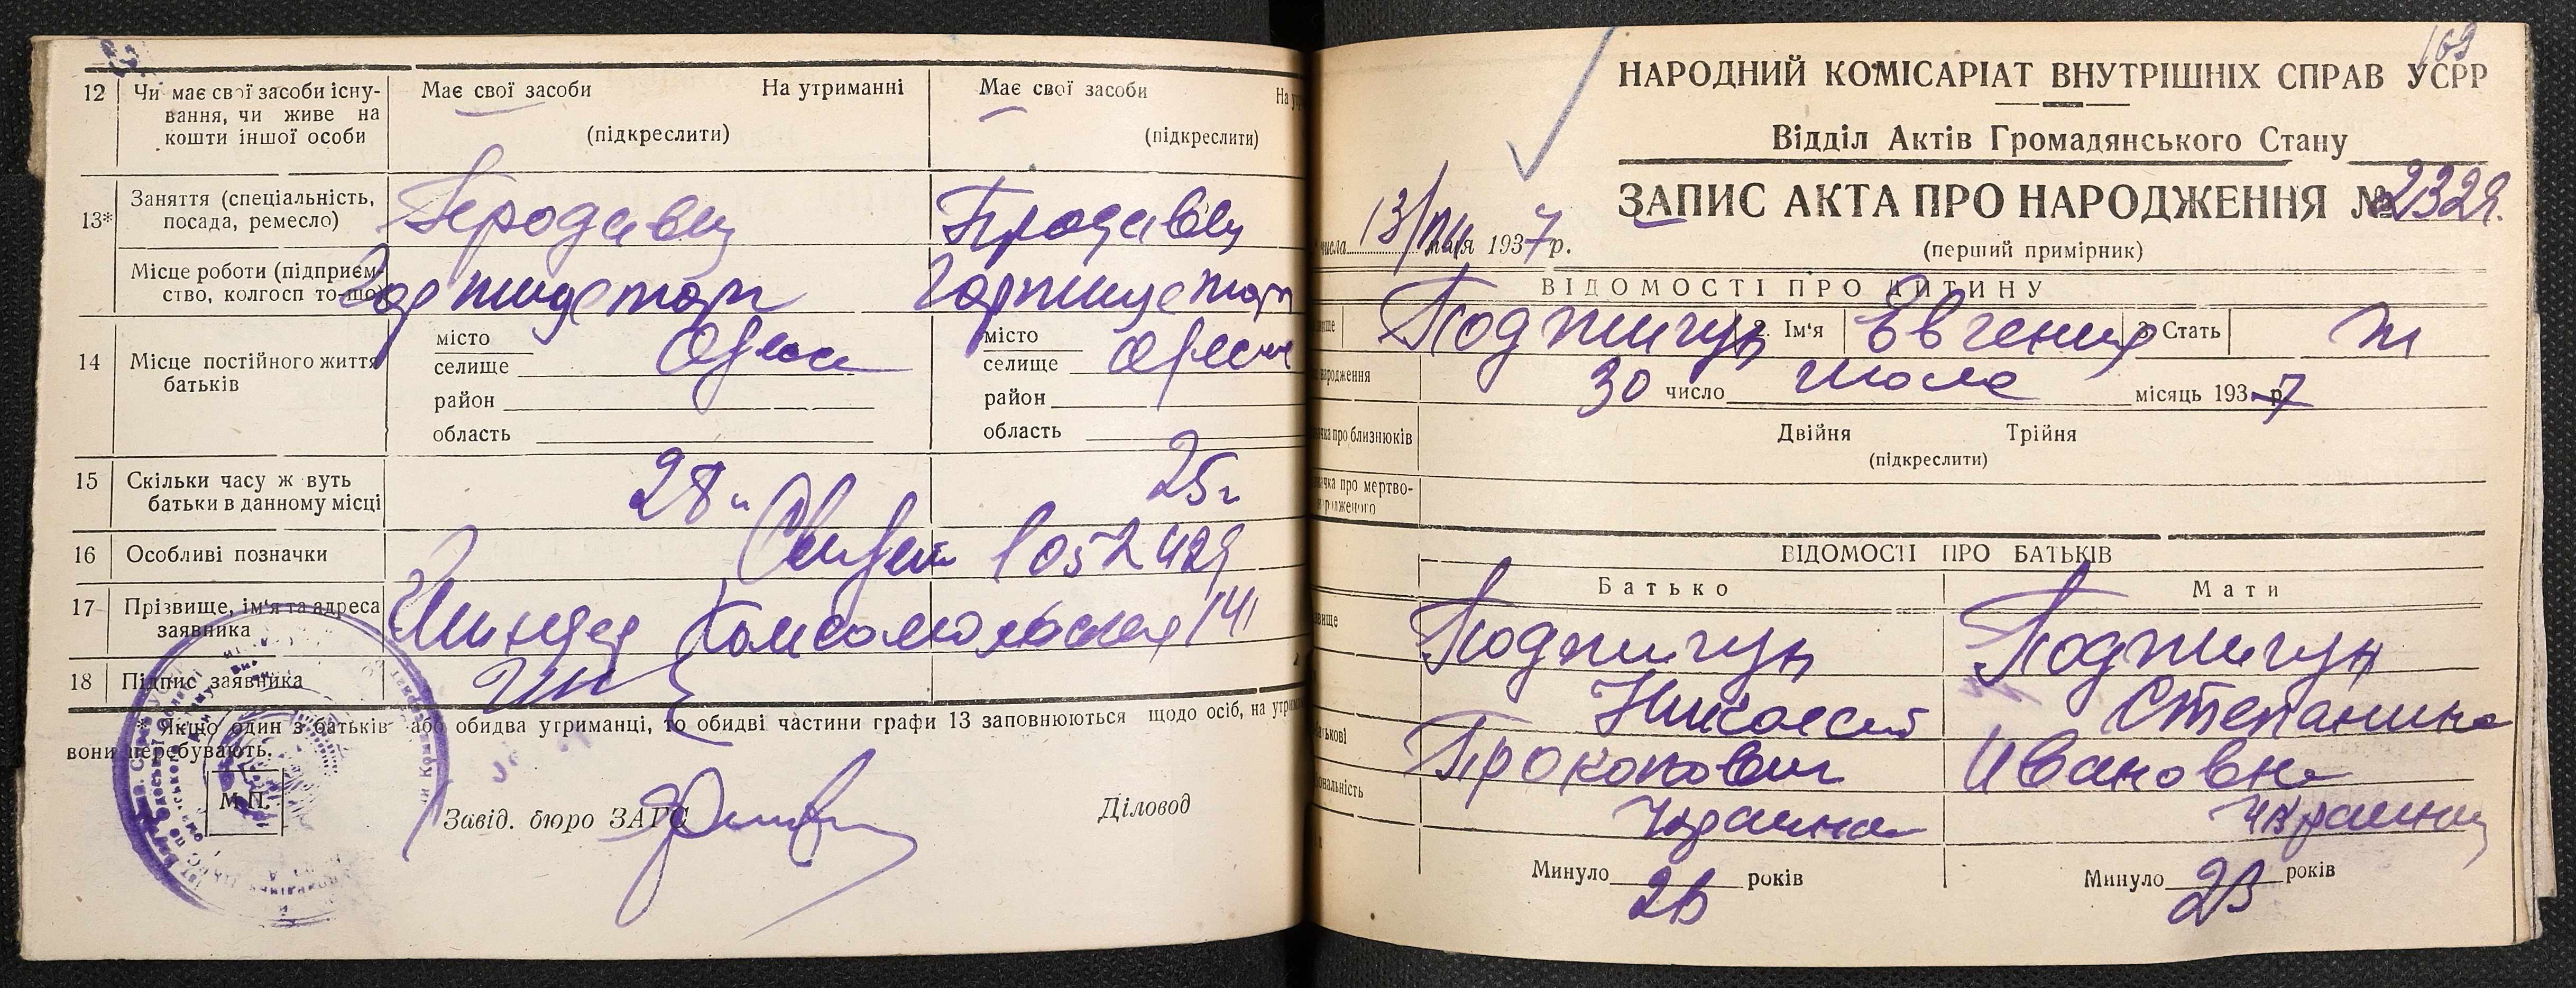 12 Чи має свої засоби існу-
вання, чи живе на
кошти іншої особи
Має свої засоби На утриманні
(підкреслити)
Має свої засоби
(підкреслити)
13* Заняття (спеціальність,
посада, ремесло)
Продавец Продавец
Місце роботи (підприєм-
ство, колгосп то-що)
Горпищеторг Горпищеторг
14 Місце постійного життя
батьків
місто
селище
Одесса
район
область
місто
селище
Одесса
район
область
15 Скільки часу ж вуть
батьки в данному місці
25 г
16 Особливі позначки
1052429
17 Прізвище, ім'я та адреса
заявника
Комсомольская 141
18 Підпис заявника
* Якщо один з батьків або обидва утриманці, то обидві частини графи 13 заповнюються щодо осіб, на
вони перебувають.
М.П.
Завід. бюро ЗАГС Діловод
169
НАРОДНИЙ КОМІСАРІАТ ВНУТРІШНІХ СПРАВ УСРР
Відділ Актів Громадянського Стану
ЗАПИС АКТА ПРО НАРОДЖЕННЯ № 2329.
числа 13/ 1937 р.
(перший примірник)
ВІДОМОСТІ ПРО ДИТИНУ
Поджигун 2. Ім'я Евгения 3. Стать ж
30 число июля місяць 1937 р.
про близнюків
Двійня Трійня
(підкреслити)
про мертво-
ВІДОМОСТІ ПРО БАТЬКІВ
Батько Мати
Поджигун Поджигун
Николай Степанида
Прокопович Ивановна
Минуло 28 років Минуло 28 років